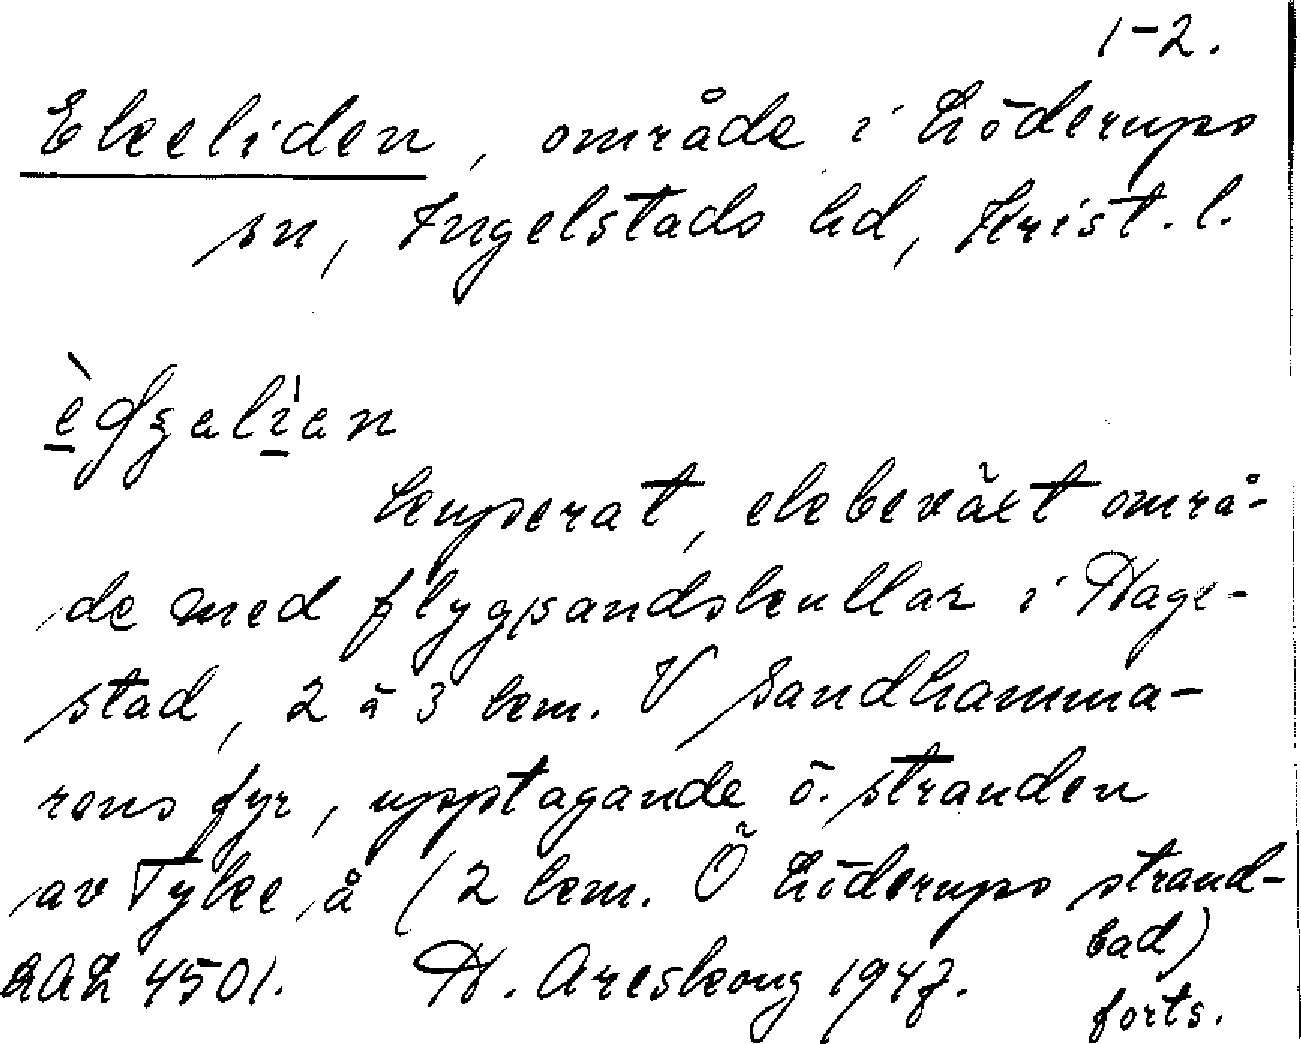 1-2.
Ekeliden, område i Löderups
sn, Ingelstads hd, Krist. l.
kuperat, ekbeväxt områ-
de med flygsandskullar i Hage-
stad, 2 à 3 km. V Sandhamma-
rens fyr, upptagande ö. stranden
av Tyke å (2 km. Ö Löderups strand-
bad)
LAL 4501. H. Areskoug 1947.
forts.